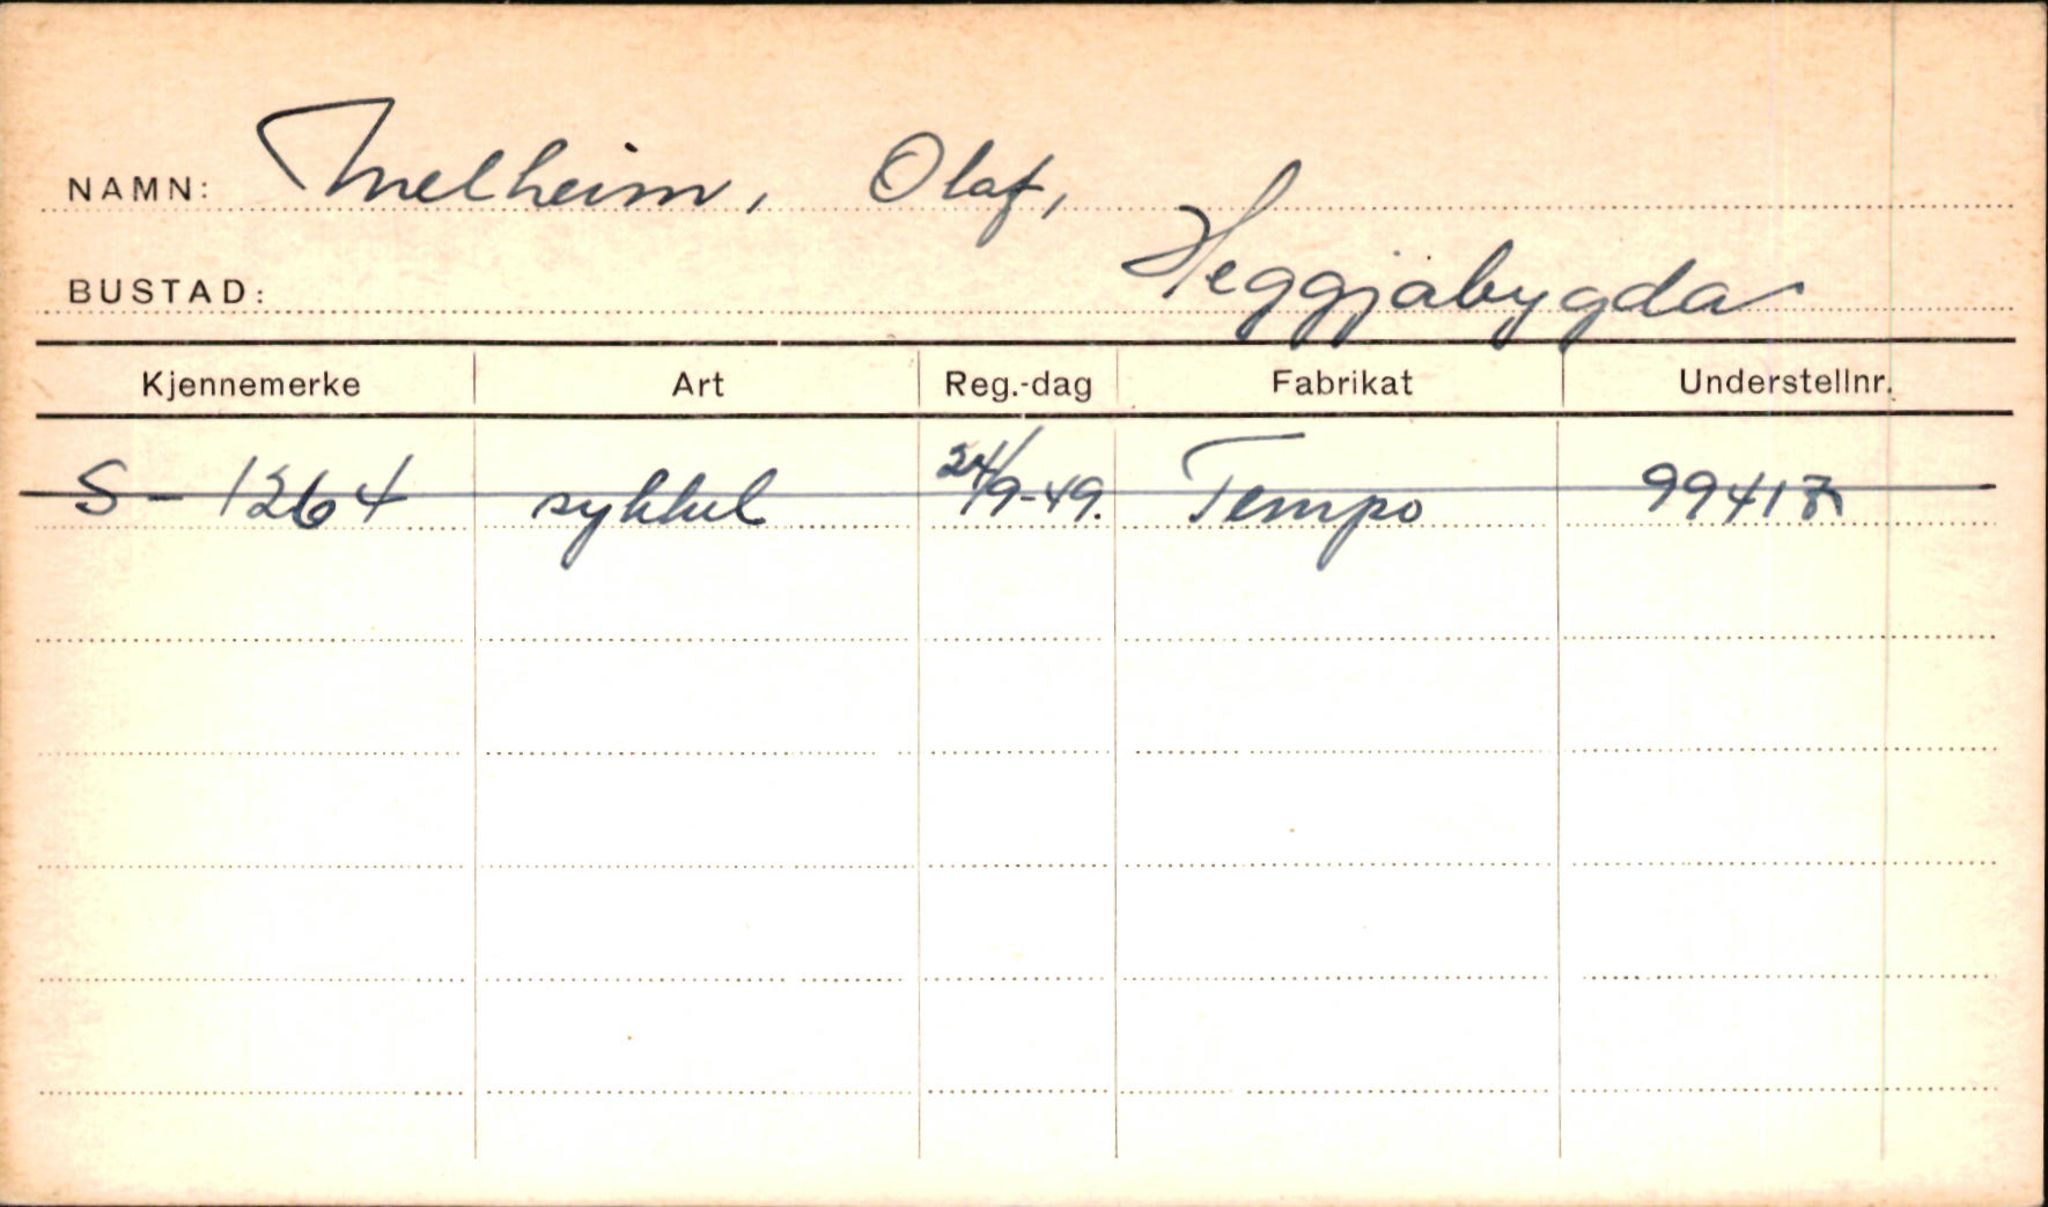 NAMN: Melheim, Olaf,
BUSTAD: Heggjabygda
Kjennemerke Art Reg.-dag Fabrikat Understellnr.
S-1264 sykkel 24/9-49. Tempo